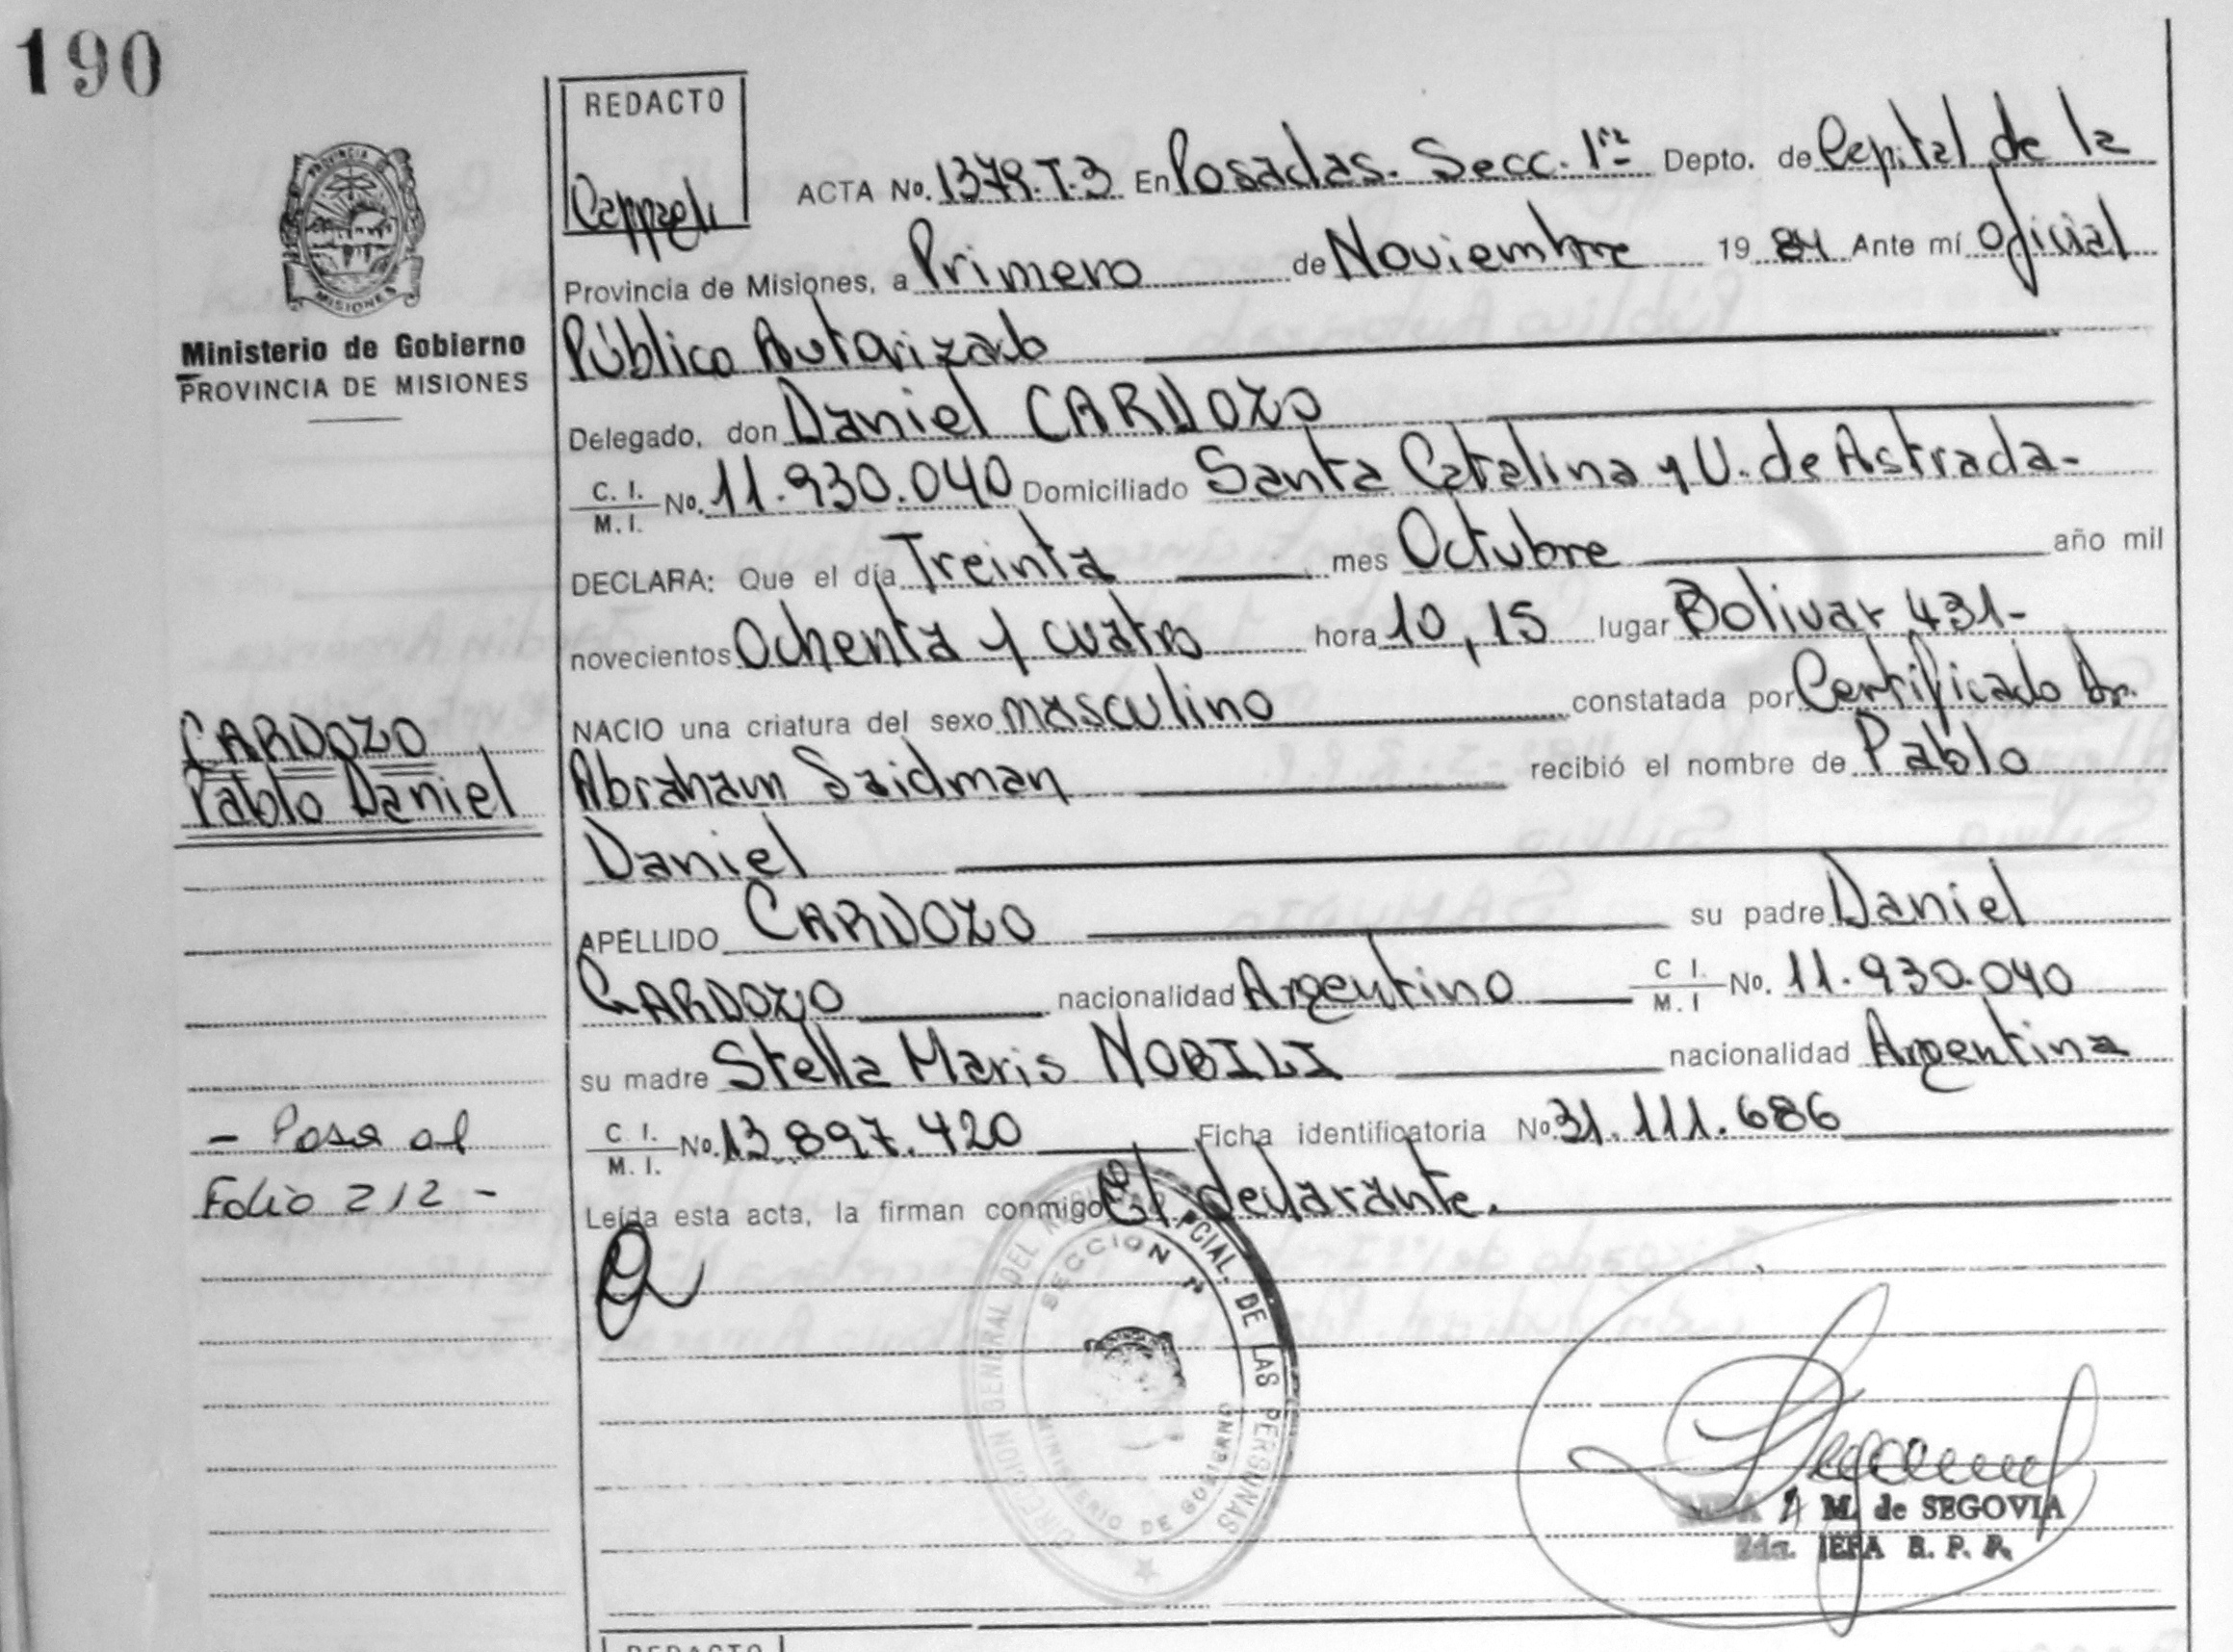 190
REDACTO
ACTA No. 1379.T.3 En Posadas. Secc. 1ra Depto. de Capital de la
Provincia de Misiones, a Primero de Noviembre 19 84 Ante mí Oficial
Público Autorizado
Delegado, don Daniel CARDOZO
C. I. / M. I. No. 11.930.040 Domiciliado Santa Catalina y U. de Astrada-
DECLARA: Que el día Treinta mes Octubre año mil
novecientos Ochenta y cuatro hora 10,15 lugar Bolivar 431-
NACIO una criatura del sexo masculino constatada por Certificado Dr.
Abraham Saidman recibió el nombre de Pablo
Daniel
APELLIDO CARDOZO su padre Daniel
CARDOZO nacionalidad Argentino C I. / M. I No. 11.930.040
su madre Stella Maris NOBILI nacionalidad Argentina
C I. / M. I. No. 13.897.420 Ficha identificatoria No 31.111.686
Leída esta acta, la firman conmigo El declarante.
PROVINCIA DE MISIONES
Ministerio de Gobierno
PROVINCIA DE MISIONES
CARDOZO
Pablo Daniel
- Pasa al
Folio 212 -
DIRECCION GENERAL DEL PCIAL. DE LAS PERSONAS
SECCION 1a
MINISTERIO DE GOBIERNO
M. de SEGOVIA
2da. JEFA R. P. P.
REDACTO